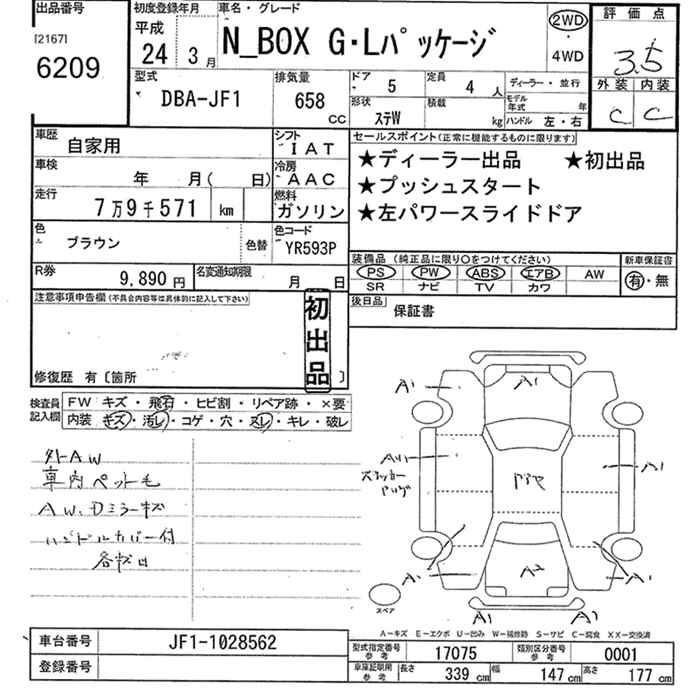 出品番号
[2167]
6209
初度登録年月
平成
24 3月
車名・グレード
N_BOX G・Lパッケージ
2WD
4WD
評価点
3.5
外装 内装
C C
型式
DBA-JF1
排気量
658
CC
ドア 5
形状 ステW
定員 4人
積載 kg
ディーラー・並行
モデル年式 年
ハンドル 左・右
車歴 自家用
シフト IAT
車検 年 月( 日)
冷房 AAC
走行 7万9千571 km
燃料 ガソリン
色 ブラウン
色替
色コード YR593P
R券 9,890円
名変通知期限 月 日
セールスポイント(正常に機能するものに限ります)
★ディーラー出品 ★初出品
★プッシュスタート
★左パワースライドドア
装備品 (純正品に限り○をつけてください)
新車保証書
PS PW ABS エアB AW
SR ナビ TV カワ
有・無
後日品 保証書
注意事項申告欄(不具合内容等は具体的に記入して下さい)
初出品
修復歴 有〔箇所 〕
検査員記入欄
FW キズ・飛石・ヒビ割・リペア跡・×要
内装 キズ・汚レ・コゲ・穴・スレ・キレ・破レ
外AW
車内ペット毛
AW、Dミラーキズ
ハンドルカバー付
A1 A1 A1
A1
A1
A1 A2 A1
A1 A1
スペア
A-キズ E-エクボ U-凹み W-補修跡 S-サビ C-腐食 XX-交換済
車台番号 JF1-1028562
登録番号
型式指定番号 参考 17075
類別区分番号 参考 0001
車庫証明用 参考 長さ 339 cm 幅 147 cm 高さ 177 cm